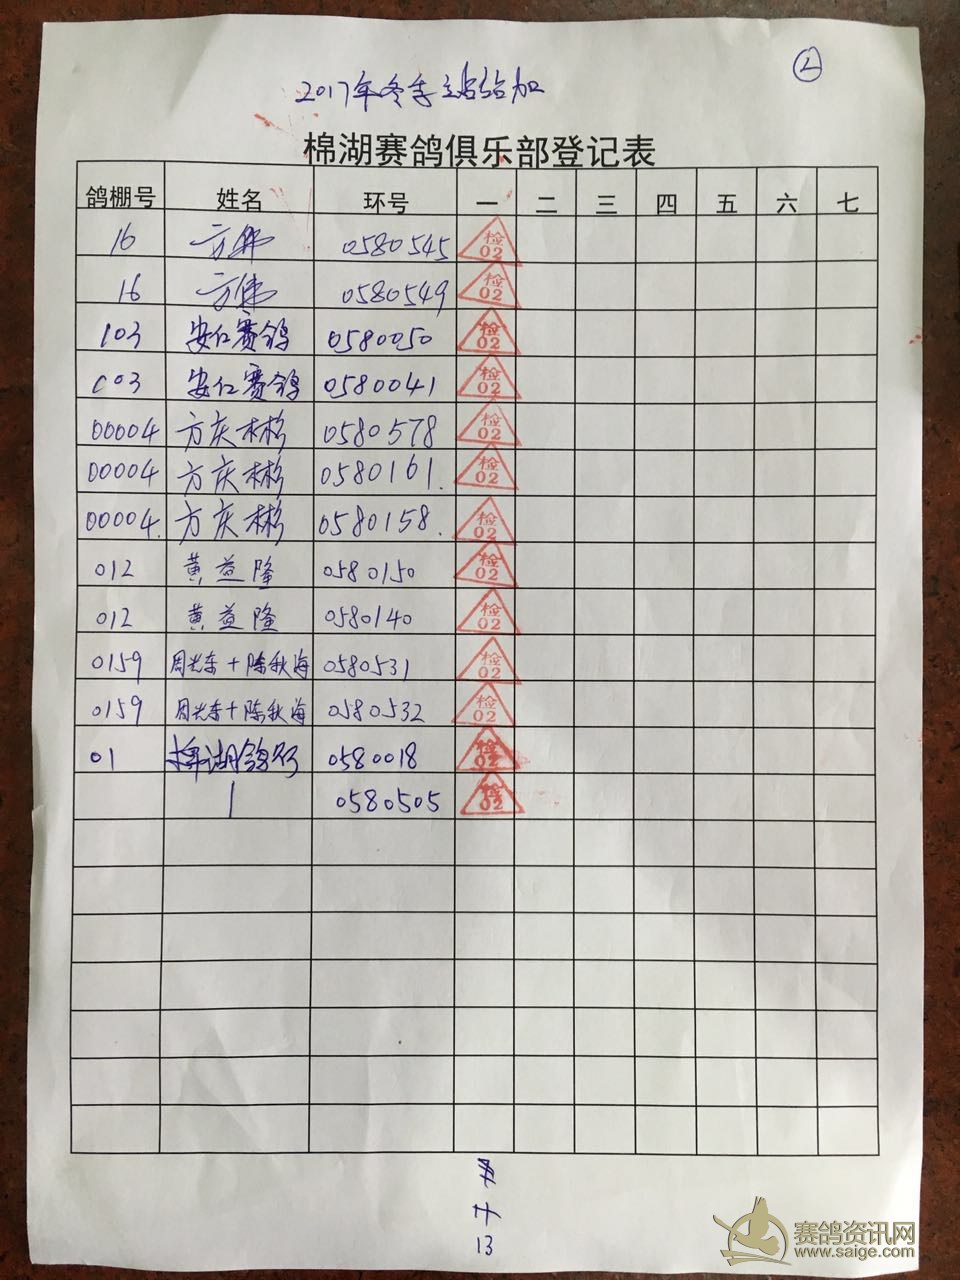 2017年冬季
棉湖赛鸽俱乐部登记表
鸽棚号 姓名 环号 一 二 三 四 五 六 七
16 方伟 0580545 检02
16 方伟 0580549 检02
103 安仁赛鸽 0580050 检02
003 安仁赛鸽 0580041 检02
00004 方庆彬 0580578 检02
00004 方庆彬 0580161. 检02
00004. 方庆彬 0580158. 检02
012 黄益隆 0580150 检02
012 黄益隆 0580140 检02
0159 周光东+陈秋海 0580531 检02
0159 周光东+陈秋海 0580532 检02
01 棉湖鸽行 0580018 检02
0580505 检02
共
13
赛鸽资讯网
www.saige.com